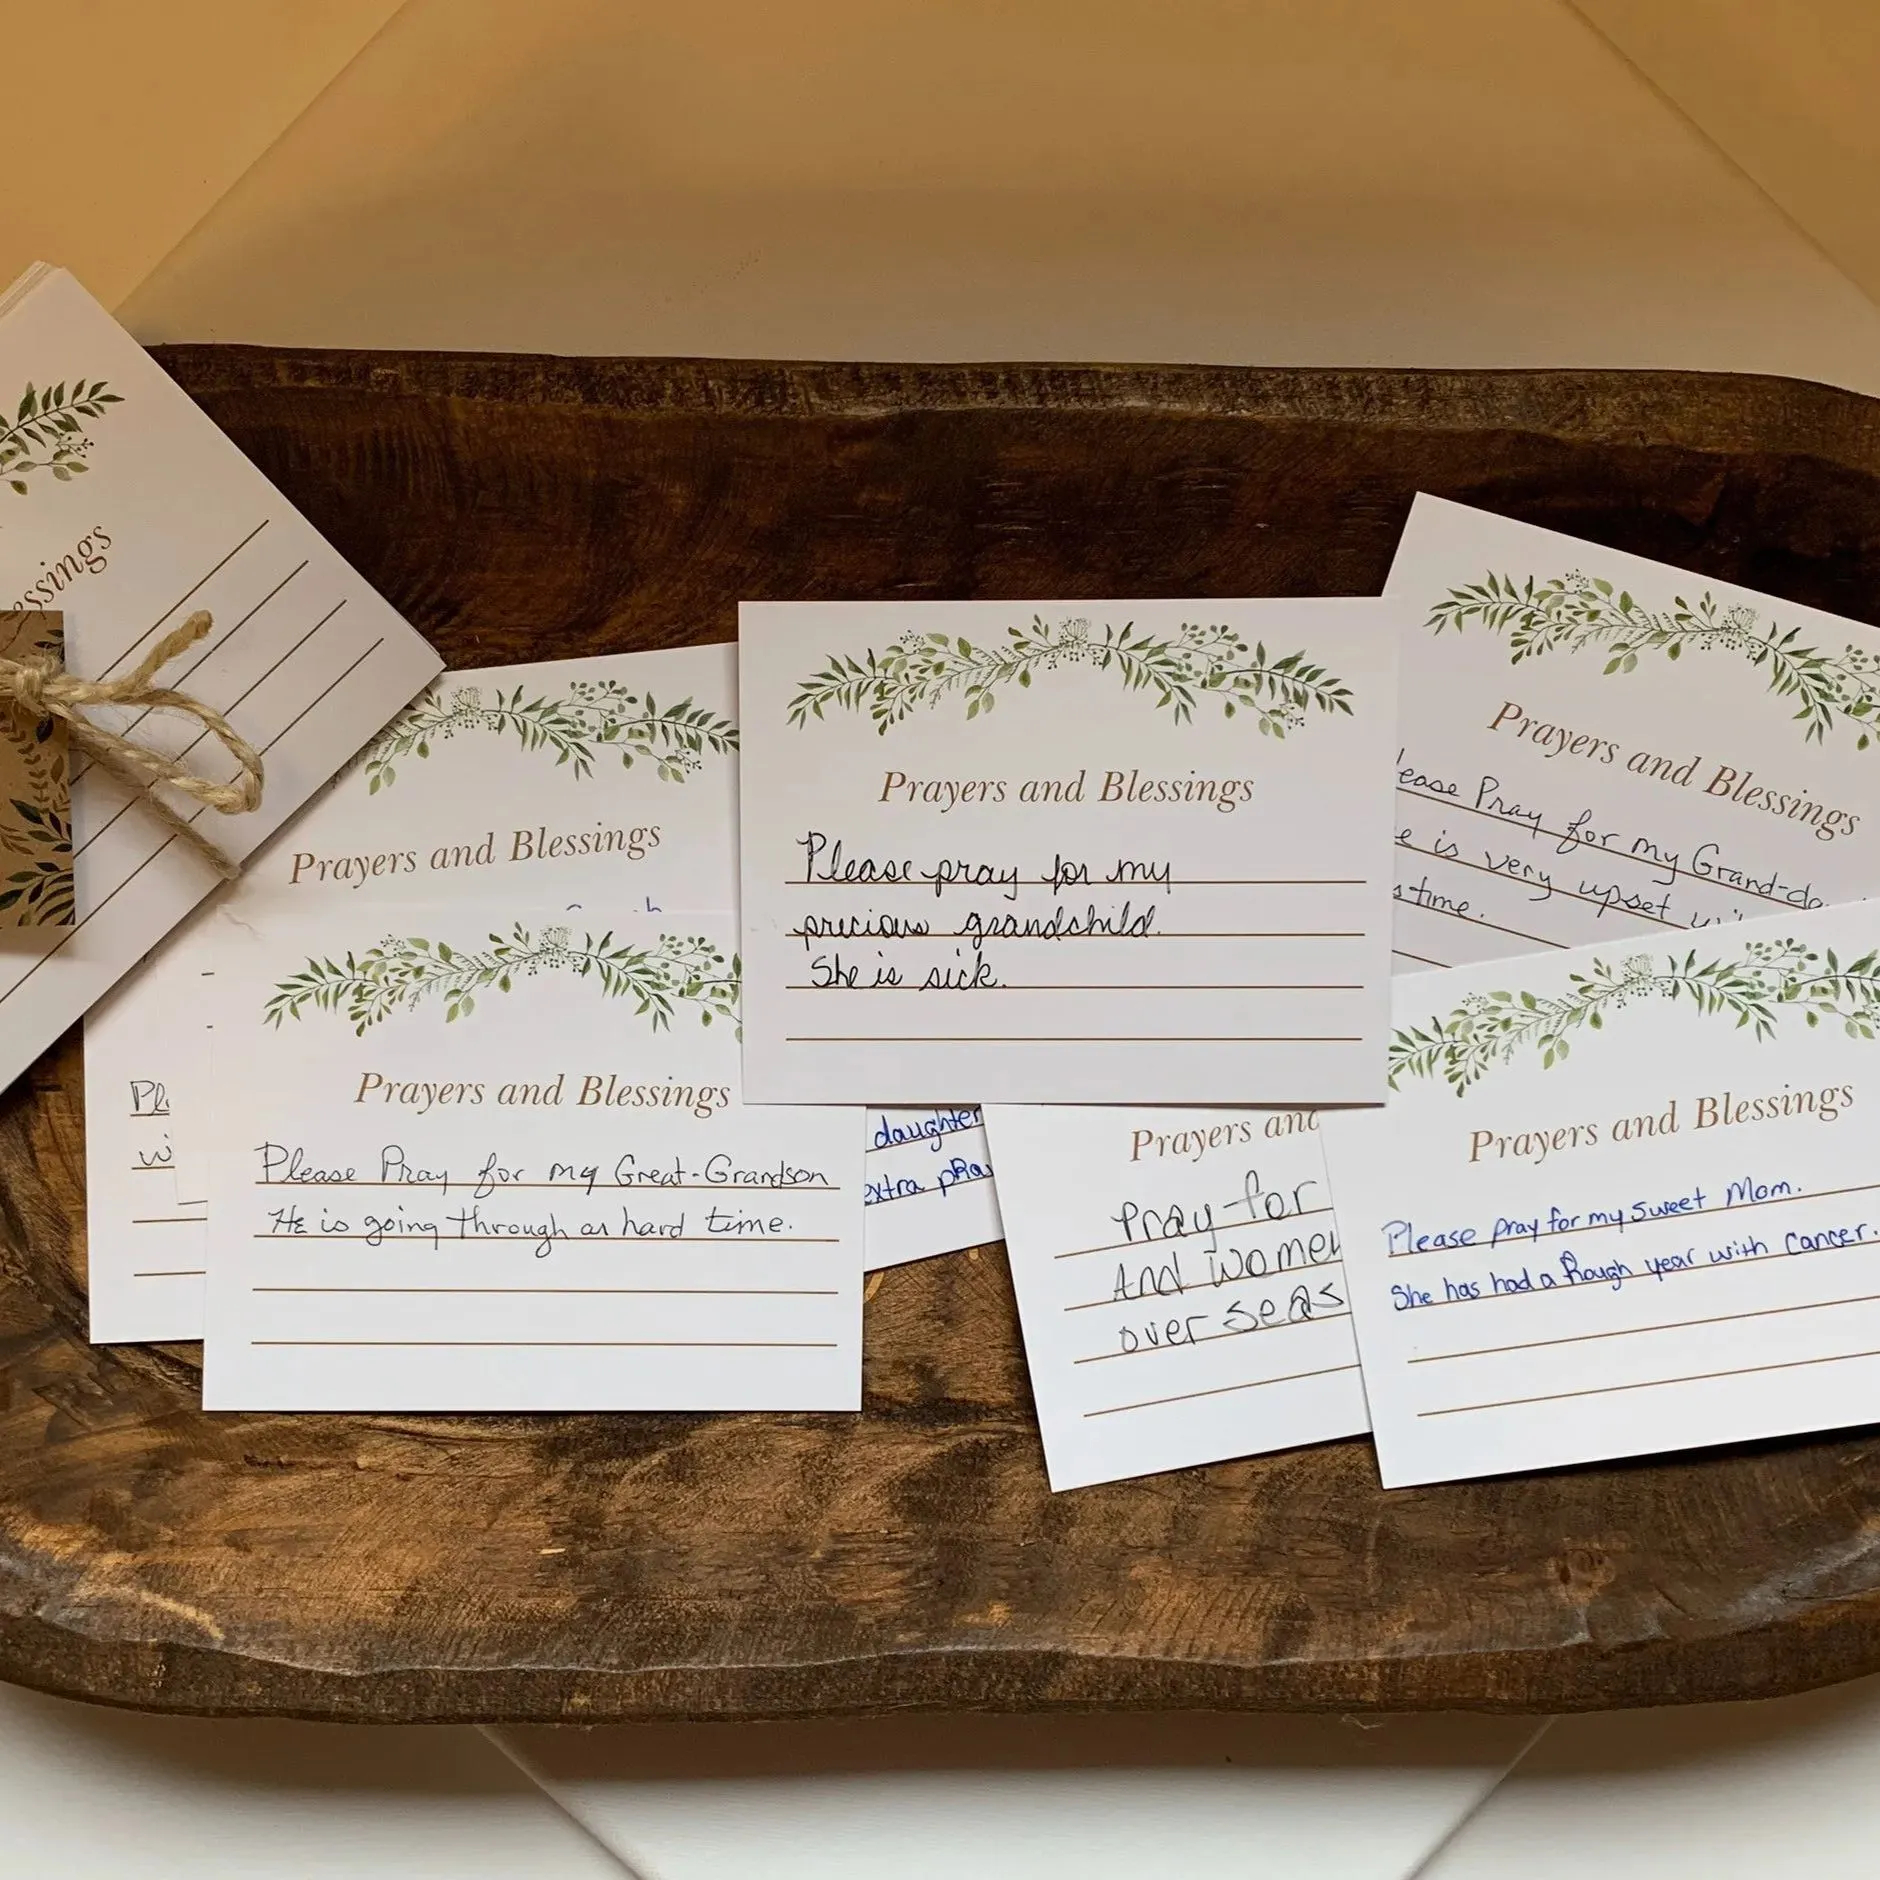 Prayers and Blessings
Prayers and Blessings
Please pray for my
precious grandchild.
She is sick.
Prayers and Blessings
Pray for my Grand-
is very upset
time.
Prayers and Blessings
Please Pray for my Great-Grandson
He is going through an hard time.
daughter
extra
Prayers
Pray for
And women
over seas
Prayers and Blessings
Please pray for my sweet Mom.
She has had a Rough year with cancer.